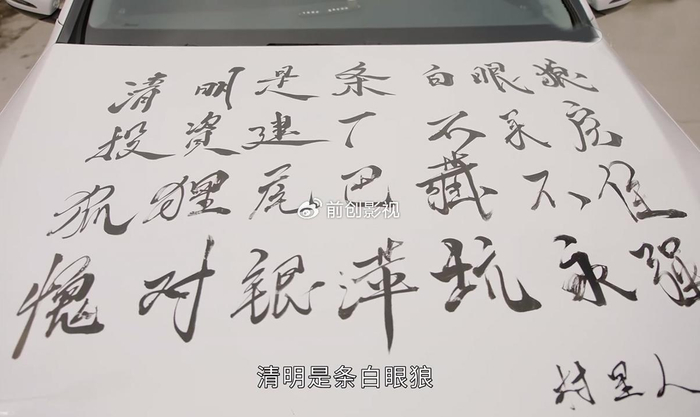 清明是条白眼狼
投資建厂不
狐狸尾巴藏不住
愧对银萍坑永强
村里人
前创影视
清明是条白眼狼